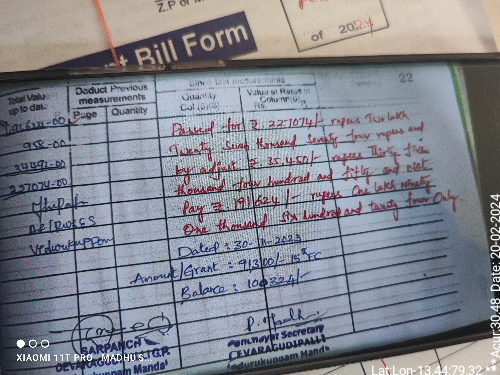 Z.P or M
of 2024
t Bill Form
22
Total Value
up to date
Deduct Previous
measurements
Page Quantity
Since last measurements
Quantity
Value at Rates in
Column(9)
Rs.
191624-00
958-00
34492-00
227074-00
Passed for ₹ 227074/- rupees Two lakh
Twenty Seven thousand Seventy four rupees and
by adjust ₹ 35,450/- rupees Thirty five
thousand four hundred and fifty and net
Pay ₹ 191624/- rupees One lakh Ninety
One thousand Six hundred and twenty four Only
Dated: 30-11-2023
Amount/Grant: 91300/- 15th FC
Balance: 100324/-
SARPANCH
DEVARAGUDIPALLI G.P.
Vedurukuppam Mandal
Panchayat Secretary
DEVARAGUDIPALLI
Vedurukuppam Manda
XIAOMI 11T PRO - MADHU S
Lat:Lon-13.44:79.32 ** Acu:30.48, Date: 20-02-2024